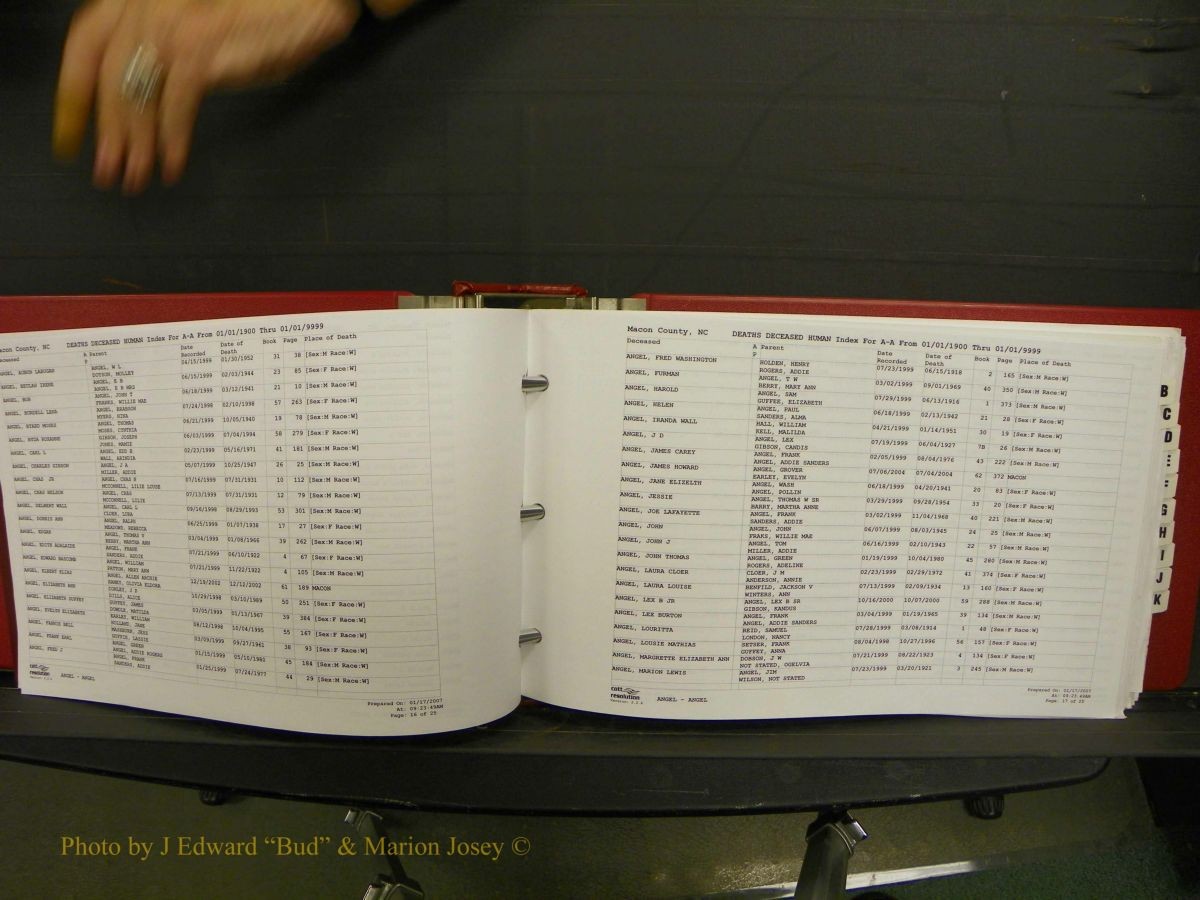 con County, NC DEATHS DECEASED HUMAN Index For A-A From 01/01/1900 Thru 01/01/9999
eceased A Parent Date Recorded Date of Death Book Page Place of Death
P
ANGEL, W L 04/15/1999 01/30/1952 31 38 [Sex:M Race:W]
DOTSON, MOLLEY
ANGEL, E B 06/15/1999 02/03/1944 23 85 [Sex:F Race:W]
ANGEL, BOB ANGEL, JOHN T 06/18/1999 03/12/1941 21 10 [Sex:M Race:W]
FRANKS, WILLIE MAE
ANGEL, BURDELL LENA 07/24/1998 02/10/1998 57 263 [Sex:F Race:W]
MYERS, NINA
ANGEL, THOMAS 06/21/1999 10/05/1940 19 78 [Sex:M Race:W]
MOSES, CYNTHIA
GIBSON, JOSEPH 06/03/1999 07/04/1994 58 279 [Sex:F Race:W]
JONES, MAMIE
ANGEL, CARL L 02/23/1999 05/16/1971 41 181 [Sex:M Race:W]
ANGEL, CHARLES GIBSON ANGEL, J A 05/07/1999 10/25/1947 26 25 [Sex:M Race:W]
MILLER, ADDIE
ANGEL, CHAS JR ANGEL, CHAS N 07/16/1999 07/31/1931 10 112 [Sex:M Race:W]
MCCONNELL, LILIE LOUSE
ANGEL, CHAS NELSON ANGEL, CHAS 07/13/1999 07/31/1931 12 79 [Sex:M Race:W]
MCCONNELL, LILIE
ANGEL, DELBERT WALL ANGEL, CARL L 09/16/1998 08/29/1993 53 301 [Sex:M Race:W]
ANGEL, DORRIS ANN ANGEL, RALPH 06/25/1999 01/07/1938 17 27 [Sex:F Race:W]
MEADOWS, REBECCA
ANGEL, EDGAR ANGEL, THOMAS V 03/04/1999 01/08/1966 39 262 [Sex:M Race:W]
BERRY, MARTHA ANN
ANGEL, EDITH ADALAIDE ANGEL, FRANK 07/21/1999 06/10/1922 4 67 [Sex:F Race:W]
SANDERS, ADDIE
ANGEL, EDWARD BASCOMB ANGEL, WILLIAM 07/21/1999 11/22/1922 4 105 [Sex:M Race:W]
PATTON, MARY ANN
ANGEL, ELBERT ELIAS ANGEL, ALLEN ARCHIE 12/19/2002 12/12/2002 61 189 MACON
ANGEL, ELIZABETH ANN 10/29/1998 03/10/1989 50 251 [Sex:F Race:W]
DILLS, ALICE
ANGEL, ELIZABETH GUFFEY GUFFEY, JAMES 03/05/1999 01/13/1967 39 384 [Sex:F Race:W]
ANGEL, EVELYN ELIZABETH EARLEY, WILLIAM 08/12/1998 10/04/1995 55 167 [Sex:F Race:W]
HOLLAND, JANE
ANGEL, FRANCIS BELL 03/09/1999 09/27/1961 38 93 [Sex:F Race:W]
ANGEL, FRANK EARL ANGEL, GREEN 01/15/1999 05/10/1981 45 184 [Sex:M Race:W]
ANGEL, ADDIE ROGERS
ANGEL, FRED J ANGEL, FRANK 01/25/1999 07/24/1977 44 29 [Sex:M Race:W]
SANDERS, ADDIE
cott resolution ANGEL - ANGEL
Prepared On: 01/17/2007
At: 09:23:49AM
Page: 16 of 25
Macon County, NC DEATHS DECEASED HUMAN Index For A-A From 01/01/1900 Thru 01/01/9999
Deceased A Parent Date Recorded Date of Death Book Page Place of Death
P
ANGEL, FRED WASHINGTON HOLDEN, HENRY 07/23/1999 06/15/1918 2 165 [Sex:M Race:W]
ROGERS, ADDIE
ANGEL, FURMAN ANGEL, T W 03/02/1999 09/01/1969 40 350 [Sex:M Race:W]
BERRY, MARY ANN
ANGEL, HAROLD ANGEL, SAM 07/29/1999 06/13/1916 1 373 [Sex:M Race:W]
GUFFEE, ELIZABETH
ANGEL, HELEN ANGEL, PAUL 06/18/1999 02/13/1942 21 28 [Sex:F Race:W]
SANDERS, ALMA
ANGEL, IRANDA WALL HALL, WILLIAM 04/21/1999 01/14/1951 30 19 [Sex:F Race:W]
KELL, MALILDA
ANGEL, J D ANGEL, LEX 07/19/1999 06/04/1927 7B 26 [Sex:M Race:W]
GIBSON, CANDIS
ANGEL, JAMES CAREY ANGEL, FRANK 02/05/1999 08/04/1976 43 222 [Sex:M Race:W]
ANGEL, ADDIE SANDERS
ANGEL, JAMES HOWARD ANGEL, GROVER 07/06/2004 07/04/2004 62 372 MACON
EARLEY, EVELYN
ANGEL, JANE ELIZELTH ANGEL, WASH 06/18/1999 04/20/1941 20 83 [Sex:F Race:W]
ANGEL, POLLIN
ANGEL, JESSIE ANGEL, THOMAS W SR 03/29/1999 09/28/1954 33 20 [Sex:F Race:W]
BARRY, MARTHA ANNE
ANGEL, JOE LAFAYETTE ANGEL, FRANK 03/02/1999 11/04/1968 40 221 [Sex:M Race:W]
SANDERS, ADDIE
ANGEL, JOHN ANGEL, JOHN 06/07/1999 08/03/1945 24 25 [Sex:M Race:W]
FRAKS, WILLIE MAE
ANGEL, JOHN J ANGEL, TOM 06/16/1999 02/10/1943 22 57 [Sex:M Race:W]
MILLER, ADDIE
ANGEL, JOHN THOMAS ANGEL, GREEN 01/19/1999 10/04/1980 45 280 [Sex:M Race:W]
ROGERS, ADELINE
ANGEL, LAURA CLOER CLOER, J M 02/23/1999 02/29/1972 41 374 [Sex:F Race:W]
ANDERSON, ANNIE
ANGEL, LAURA LOUISE BENFILD, JACKSON V 07/13/1999 02/09/1934 13 160 [Sex:F Race:W]
WINTERS, ANN
ANGEL, LEX B JR ANGEL, LEX B SR 10/16/2000 10/07/2000 59 288 [Sex:M Race:W]
GIBSON, KANDUS
ANGEL, LEX BURTON ANGEL, FRANK 03/04/1999 01/19/1965 39 134 [Sex:M Race:W]
ANGEL, ADDIE SANDERS
ANGEL, LOURITTA REID, SAMUEL 07/28/1999 03/08/1914 1 48 [Sex:F Race:W]
LONDON, NANCY
ANGEL, LOUSIE MATHIAS SETSER, FRANK 08/04/1998 10/27/1996 56 157 [Sex:F Race:W]
GUFFEY, ANNA
ANGEL, MARGRETTE ELIZABETH ANN DOBSON, J W 07/21/1999 08/22/1923 4 134 [Sex:F Race:W]
NOT STATED, OGELVIA
ANGEL, MARION LEWIS ANGEL, JIM 07/23/1999 03/20/1921 3 245 [Sex:M Race:W]
WILSON, NOT STATED
cott resolution ANGEL - ANGEL
Prepared On: 01/17/2007
At: 09:23:49AM
Page: 17 of 25
B
C
D
E
F
G
H
I
J
K
Photo by J Edward “Bud” & Marion Josey ©